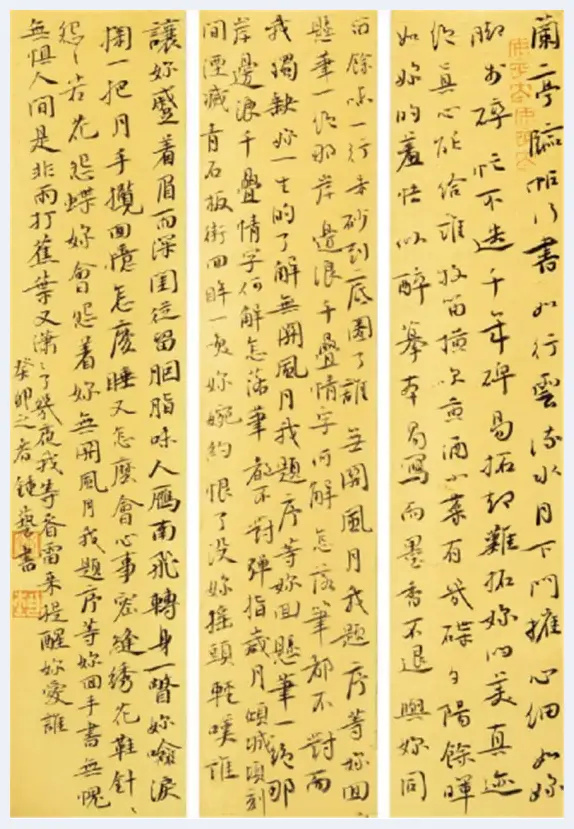 蘭亭臨帖行書如行雲流水月下門推心細如妳
腳步碎忙不迭千年碑易拓卻難拓妳的美真迹
絕真心能給誰牧笛橫吹黃酒小菜有幾碟夕陽餘暉
如妳的羞怯似醉摹本易寫而墨香不退與妳同
留餘味一行朱砂到底圈了誰無關風月我題序等妳回
懸筆一絕那岸邊浪千疊情字何解怎落筆都不對而
我獨缺妳一生的了解無關風月我題序等妳回懸筆一絕那
岸邊浪千疊情字何解怎落筆都不對彈指歲月傾城頃刻
間湮滅青石板街回眸一笑妳婉約恨了没妳搖頭輕嘆誰
讓妳蹙着眉而深閨徒留胭脂味人雁南飛轉身一瞥妳噙淚
掬一把月手攬回憶怎麼睡又怎麼會心事密縫綉花鞋針、
怨、若花怨蝶妳會怨着妳無關風月我題序等妳回手書無愧
無懼人間是非雨打蕉葉又瀟、了幾夜我等春雷來提醒妳愛誰
癸卯之春鍾藝書